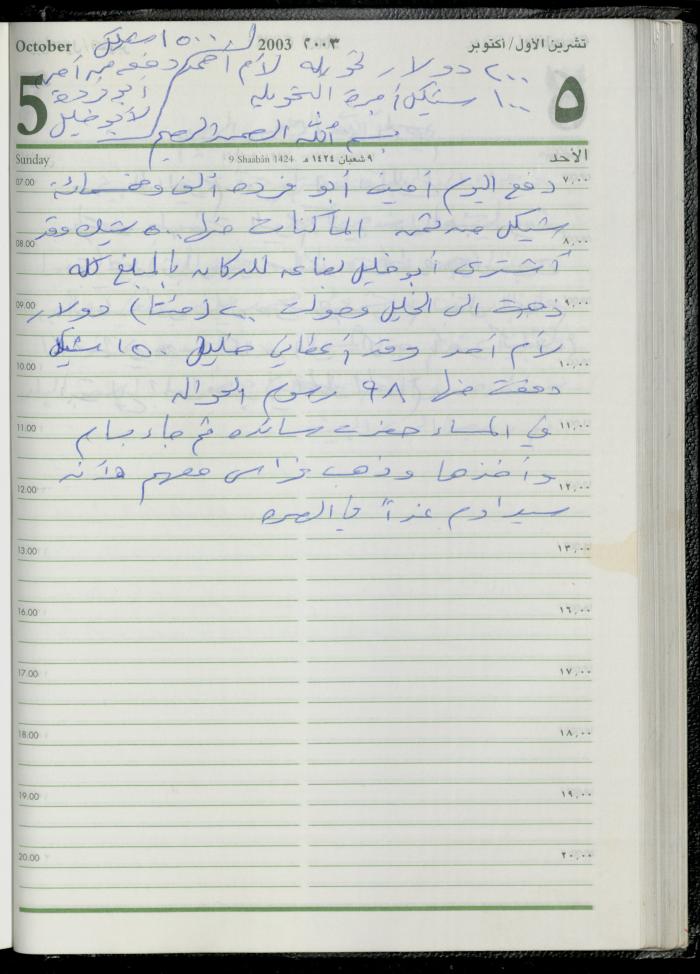 ١٥٠٠ شيكل
October 2003 ٢٠٠٣ تشرين الأول/أكتوبر
٢٠٠ دولار تحويله لأم أحمد دفع من أمين
١٠٠ شيكل أجرة التحويله
أبو فرده
لأبو خليل
5 ٥
بسم الله الرحمن الرحيم
Sunday 9 Shaabân 1424 ٩ شعبان ١٤٢٤ هـ الأحد
07.00 دفع اليوم أمين أبو فرده ألف وخمسمائة ٧,٠٠
شيكل من ثمن الماكنات منها ٥٠٠ شيك وقد
08.00 ٨,٠٠
أشترى أبو خليل بضاعه للدكان بالمبلغ كله
09.00 ذهبت الى الخليل وحولت ٢٠٠ (مئتا) دولار ٩,٠٠
لأم أحمد وقد أعطاني خليل ١٥٠ شيكل
10.00 ١٠,٠٠
دفعت منها ٩٨ رسوم الحواله
11.00 في المساء حضرت سائده ثم جاء بسام ١١,٠٠
وأخذها وذهب فراس معهم لأنه
12.00 ١٢,٠٠
سيداوم غداً في
13.00 ١٣,٠٠
16.00 ١٦,٠٠
17.00 ١٧,٠٠
18.00 ١٨,٠٠
19.00 ١٩,٠٠
20.00 ٢٠,٠٠